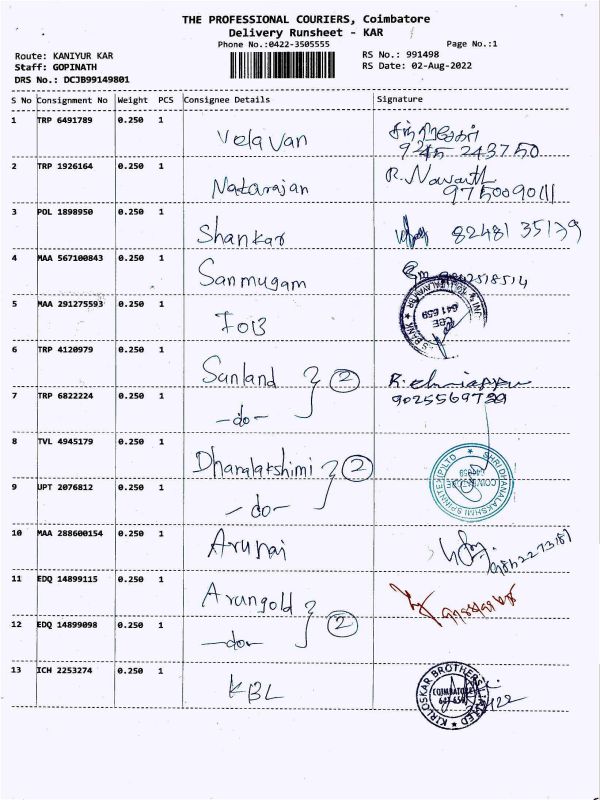 THE PROFESSIONAL COURIERS, Coimbatore
Delivery Runsheet - KAR
Phone No.:0422-3505555
Page No.:1
Route: KANIYUR KAR
RS No.: 991498
Staff: GOPINATH
RS Date: 02-Aug-2022
DRS No.: DCJB99149801
S No Consignment No Weight PCS Consignee Details Signature
1 TRP 6491789 0.250 1 Velavan
9245 243750
2 TRP 1926164 0.250 1 Natarajan R.
9750090111
3 POL 1898950 0.250 1 Shankar 82481 35179
4 MAA 567100843 0.250 1 Sanmugam
5 MAA 291275593 0.250 1 IOB
641 659
6 TRP 4120979 0.250 1 Sunland 2
7 TRP 6822224 0.250 1 -do- 9025569739
8 TVL 4945179 0.250 1 Dhanalakshimi 2
SHRI DHANALAKSHMI SPINNTEX (P) LTD
9 UPT 2076812 0.250 1 -do-
10 MAA 288600154 0.250 1 Arunai
11 EDQ 14899115 0.250 1 Arungold 2
12 EDQ 14899098 0.250 1 -do-
13 ICH 2253274 0.250 1 KBL
KIRLOSKAR BROTHERS LIMITED
COIMBATORE